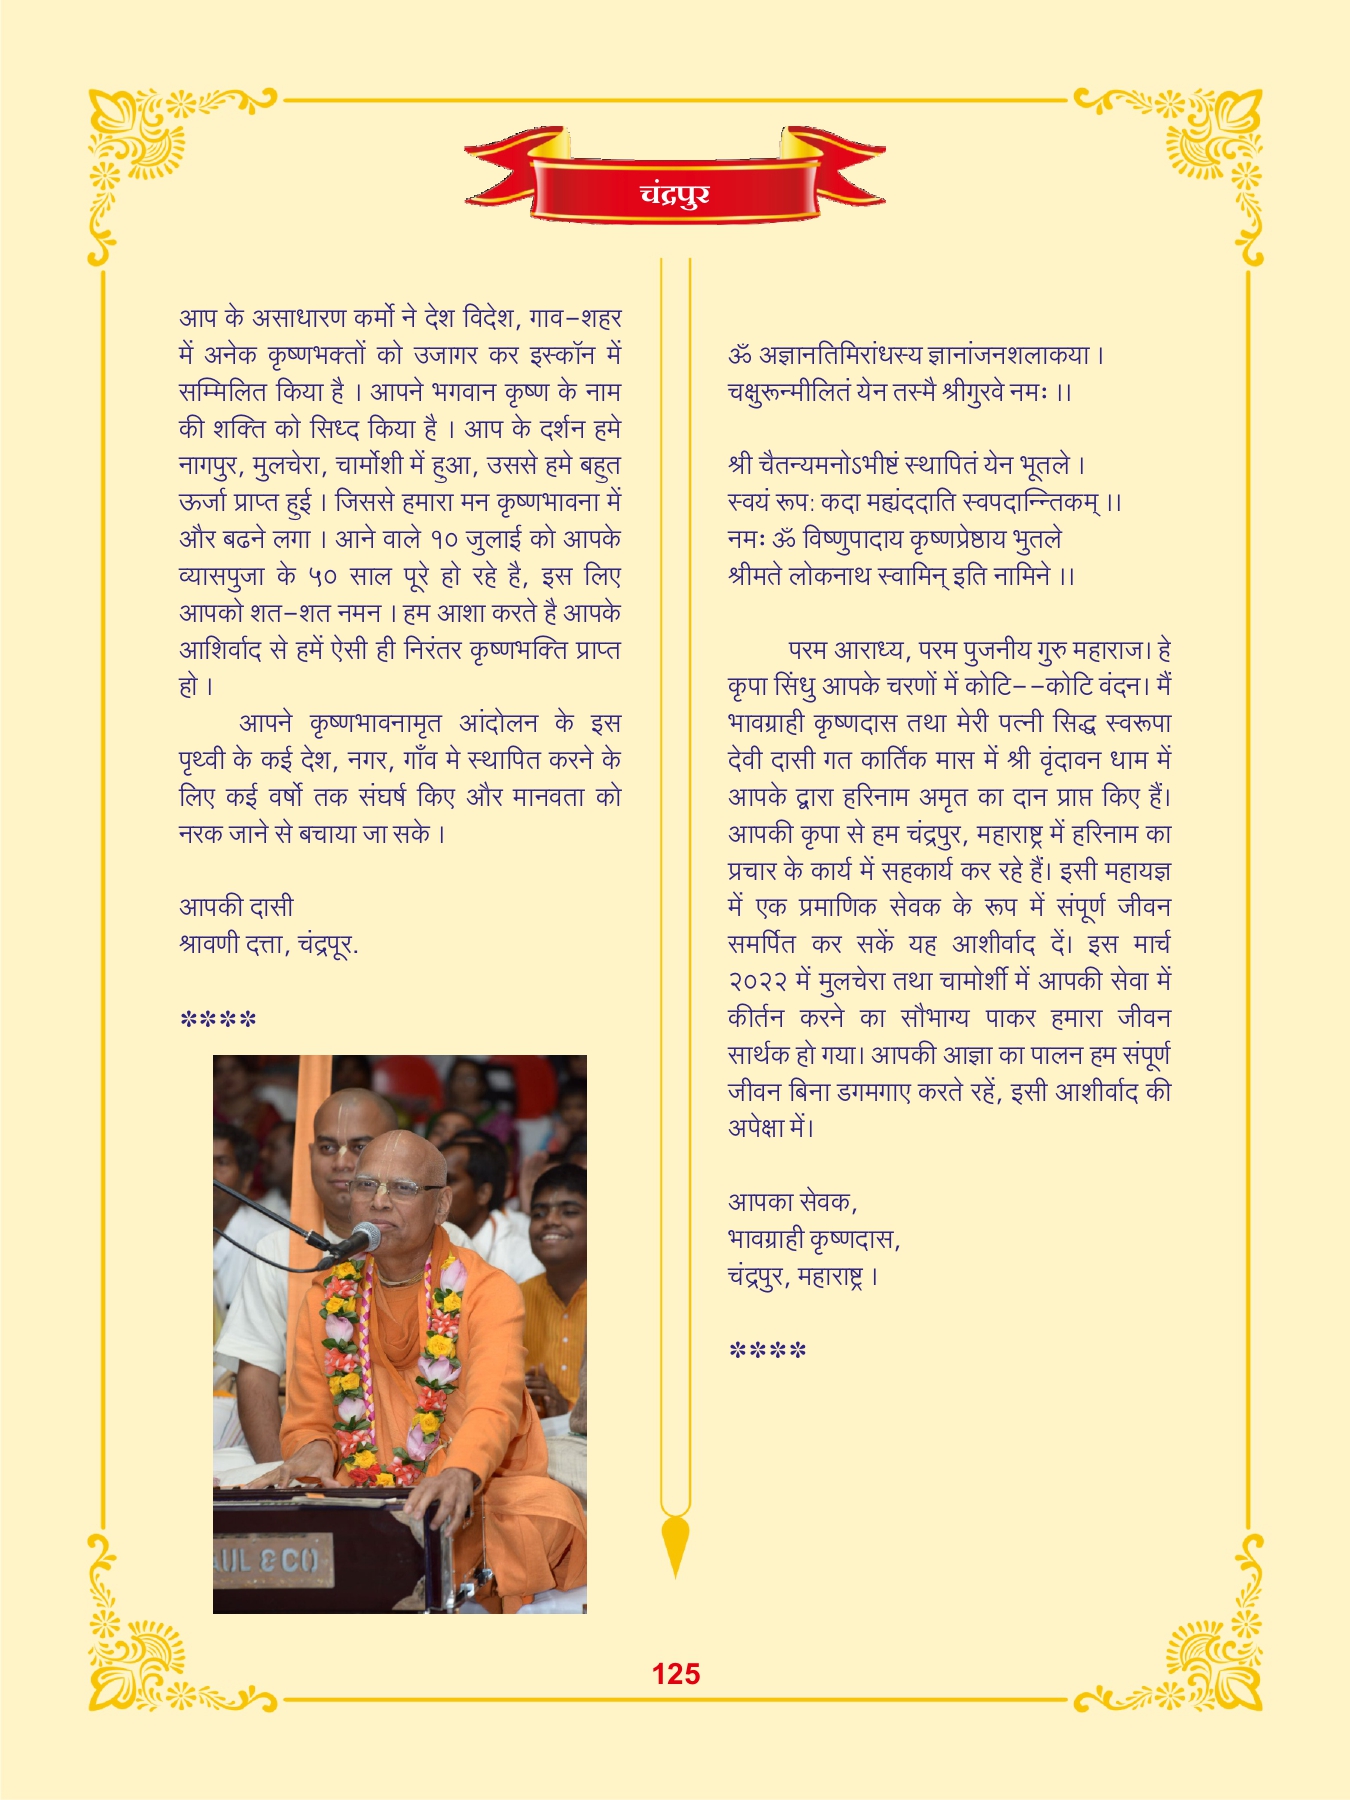 चंद्रपुर
आप के असाधारण कर्मो ने देश विदेश, गाव–शहर
में अनेक कृष्णभक्तों को उजागर कर इस्कॉन में
सम्मिलित किया है । आपने भगवान कृष्ण के नाम
की शक्ति को सिध्द किया है । आप के दर्शन हमे
नागपुर, मुलचेरा, चार्मोशी में हुआ, उससे हमे बहुत
ऊर्जा प्राप्त हुई । जिससे हमारा मन कृष्णभावना में
और बढने लगा । आने वाले १० जुलाई को आपके
व्यासपुजा के ५० साल पूरे हो रहे है, इस लिए
आपको शत–शत नमन । हम आशा करते है आपके
आशिर्वाद से हमें ऐसी ही निरंतर कृष्णभक्ति प्राप्त
हो ।
आपने कृष्णभावनामृत आंदोलन के इस
पृथ्वी के कई देश, नगर, गाँव मे स्थापित करने के
लिए कई वर्षो तक संघर्ष किए और मानवता को
नरक जाने से बचाया जा सके ।
आपकी दासी
श्रावणी दत्ता, चंद्रपूर.
****
AUL & CO
ॐ अज्ञानतिमिरांधस्य ज्ञानांजनशलाकया ।
चक्षुरून्मीलितं येन तस्मै श्रीगुरवे नमः ।।
श्री चैतन्यमनोऽभीष्टं स्थापितं येन भूतले ।
स्वयं रूप: कदा मह्यंददाति स्वपदान्न्तिकम् ।।
नमः ॐ विष्णुपादाय कृष्णप्रेष्ठाय भुतले
श्रीमते लोकनाथ स्वामिन् इति नामिने ।।
परम आराध्य, परम पुजनीय गुरु महाराज। हे
कृपा सिंधु आपके चरणों में कोटि––कोटि वंदन। मैं
भावग्राही कृष्णदास तथा मेरी पत्नी सिद्ध स्वरूपा
देवी दासी गत कार्तिक मास में श्री वृंदावन धाम में
आपके द्वारा हरिनाम अमृत का दान प्राप्त किए हैं।
आपकी कृपा से हम चंद्रपुर, महाराष्ट्र में हरिनाम का
प्रचार के कार्य में सहकार्य कर रहे हैं। इसी महायज्ञ
में एक प्रमाणिक सेवक के रूप में संपूर्ण जीवन
समर्पित कर सकें यह आशीर्वाद दें। इस मार्च
२०२२ में मुलचेरा तथा चामोर्शी में आपकी सेवा में
कीर्तन करने का सौभाग्य पाकर हमारा जीवन
सार्थक हो गया। आपकी आज्ञा का पालन हम संपूर्ण
जीवन बिना डगमगाए करते रहें, इसी आशीर्वाद की
अपेक्षा में।
आपका सेवक,
भावग्राही कृष्णदास,
चंद्रपुर, महाराष्ट्र ।
****
125